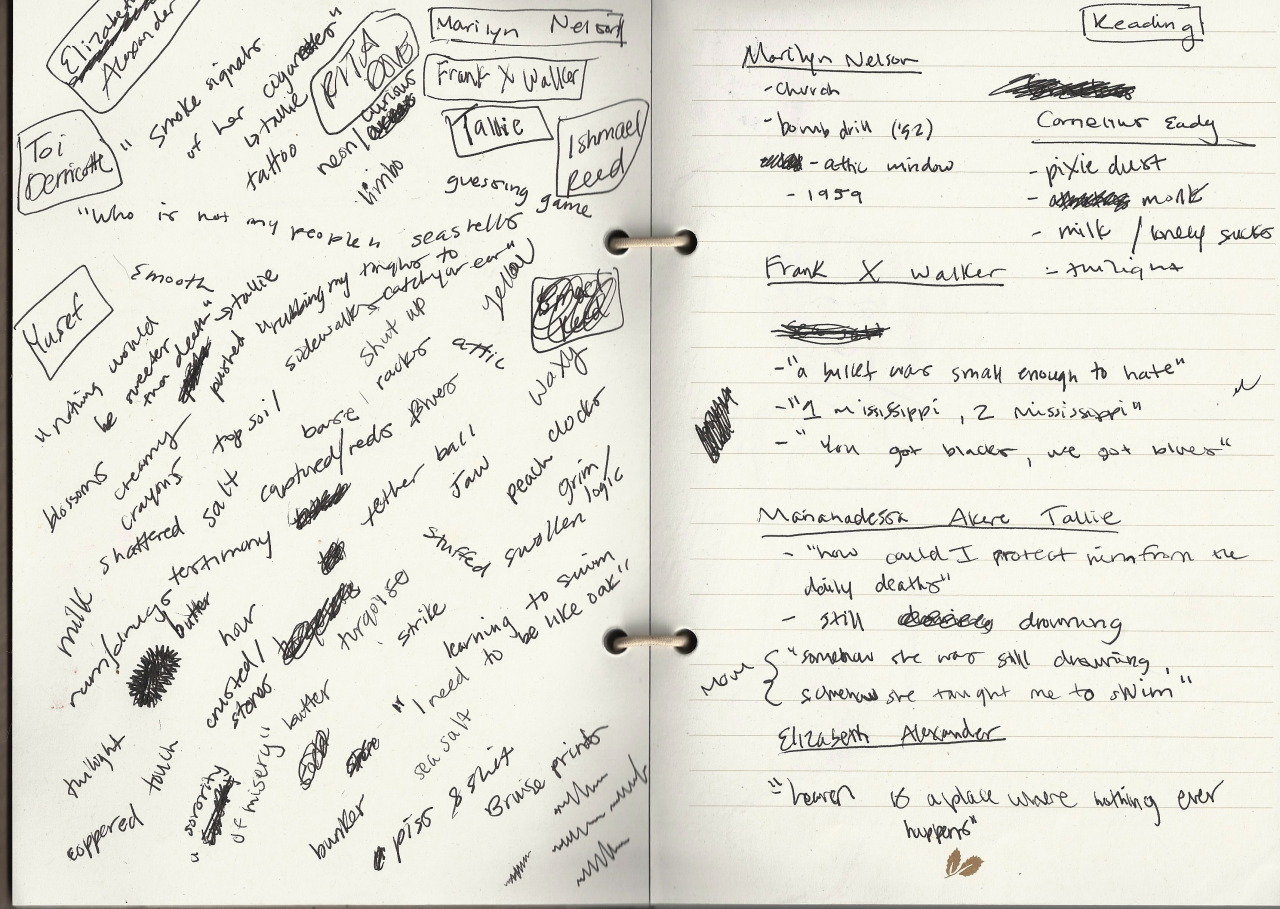 Elizabeth
Alexander
"smoke signals
of her cigarettes"
↳ tallie
tattoo
RITA
DOVE
neon/curious
limbo
Marilyn Nelson
Frank X Walker
Tallie
Ishmael
Reed
guessing game
Toi
Derricotte
"Who is not my people"
seashells
smooth
Yusef
"nothing would
be sweeter
than death" → tallie
pushed
"rubbing my thighs to
sidewalks → catch your ear"
shut up
yellow
racks
attic
waxy
blossoms
creamy
crayons
top soil
base
captured/reds
River
clocks
milk
shattered
salt
tether ball
jaw
peach
grim/
logic
rum/drugs
testimony
butter
hour
stuffed
swollen
crusted/
stones
strike
learning to swim
"I need to be like oak"
twilight
touch
butter
sea salt
coppered
"sorority
of misery"
bunker
piss & shit
Bruise prints
Reading
Marilyn Nelson
- church
- bomb drill ('52)
- attic window
- 1959
Cornelius Eady
- pixie dust
- monk
- milk / lonely sucks
- twilight
Frank X Walker
- "a bullet was small enough to hate"
- "1 mississippi, 2 mississippi"
- "You got blacker, we got blues"
Akere Tallie
- "how could I protect him from the
daily deaths"
- still drowning
mom { "somehow she was still drowning,
somehow she taught me to swim"
Elizabeth Alexander
"heaven is a place where nothing ever
happens"